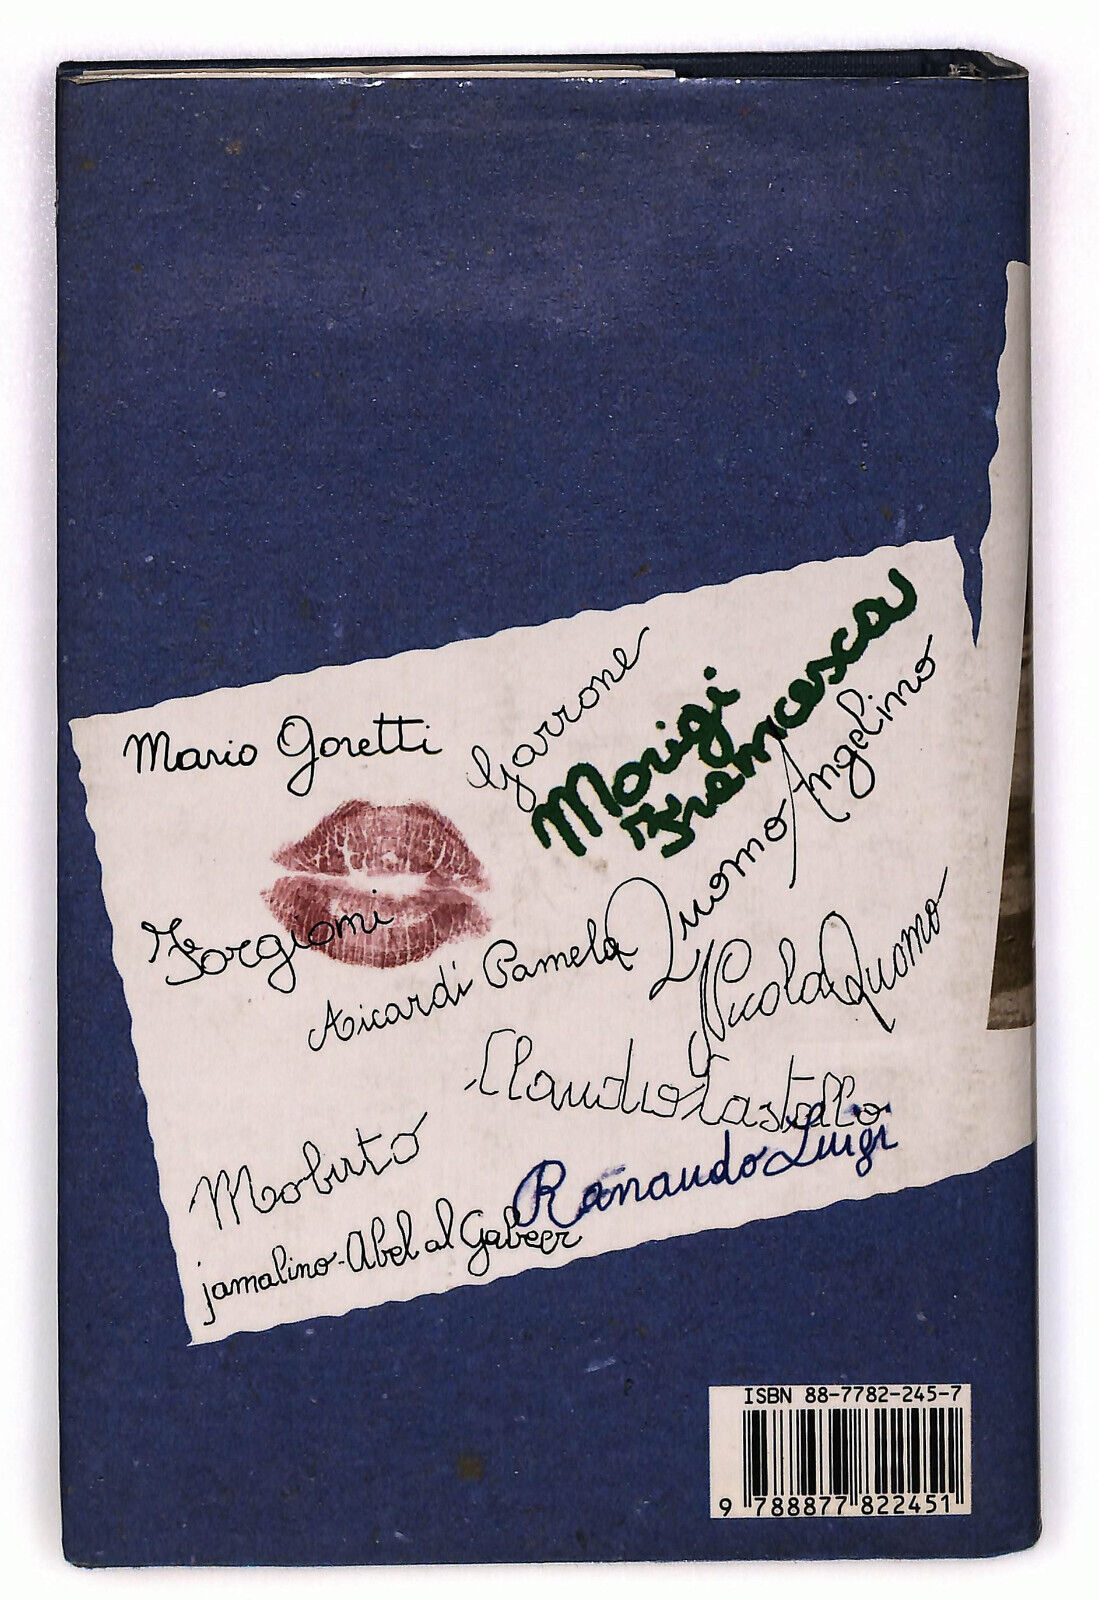 Mario Goretti
Garrone
Morigi
Francesca
Forgioni
Aicardi Pamela
Quomo Angelino
Nicola Quomo
Claudio Castello
Mobuto
Ranaudo Luigi
jamalino-Abel al Gabeer
ISBN 88-7782-245-7
9 788877 822451